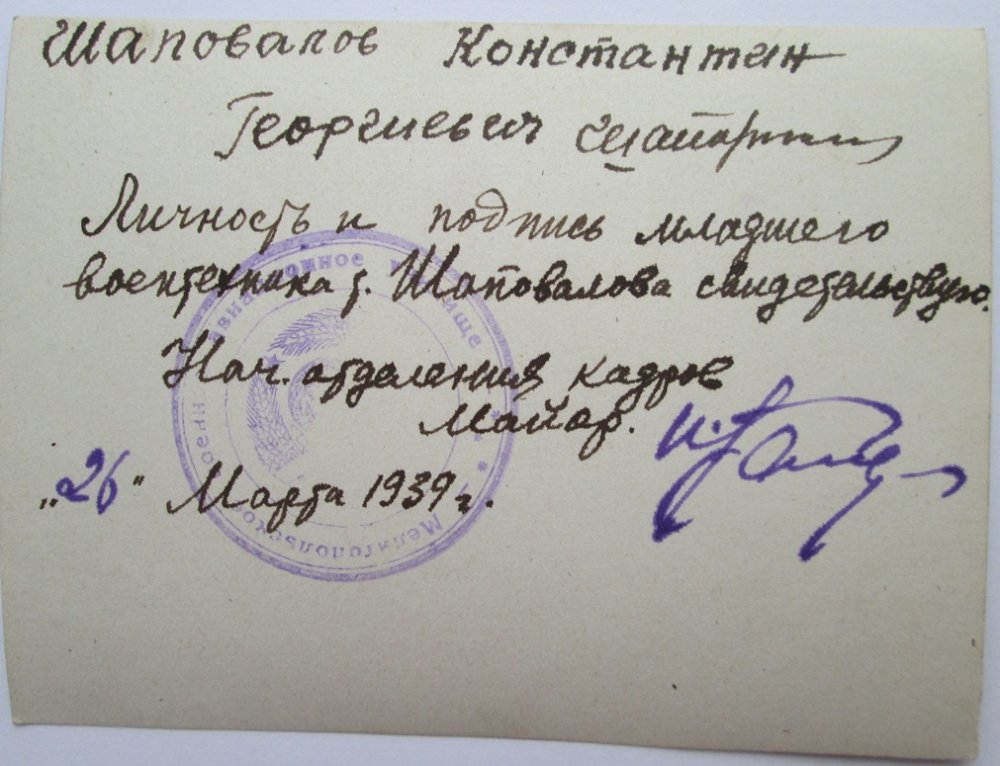 Шаповалов Константин
Георгиевич
Личность и подпись младшего
воентехника т. Шаповалова свидетельствую.
Нач. отделения кадров
Майор.
„26" Марта 1939 г.
Мелитопольское военн авиационное училище